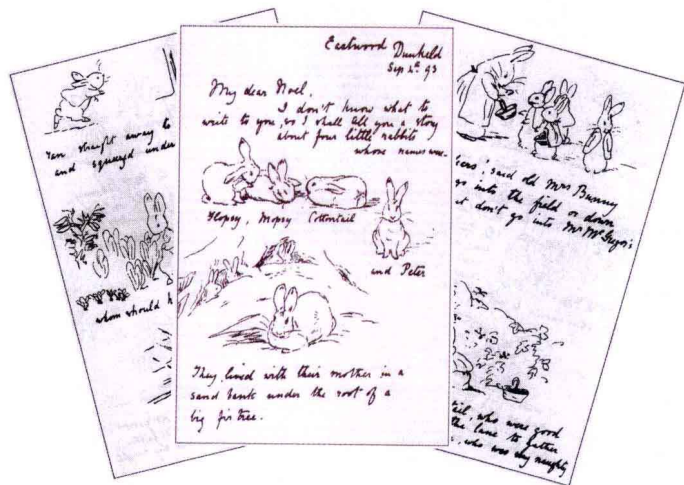 ran straight away to
and squeezed under
whom should h
Eastwood Dunkeld
Sep 4th 93
My dear Noel,
I don't know what to
write to you, so I shall tell you a story
about four little rabbits
whose names were–
Flopsy, Mopsy Cottontail
and Peter
They lived with their mother in a
sand bank under the root of a
big fir tree.
said old Mrs Bunny
go into the field or down
t don't go into Mr McGregor's
tail, who were good
the lane to gather
, who was very naughty